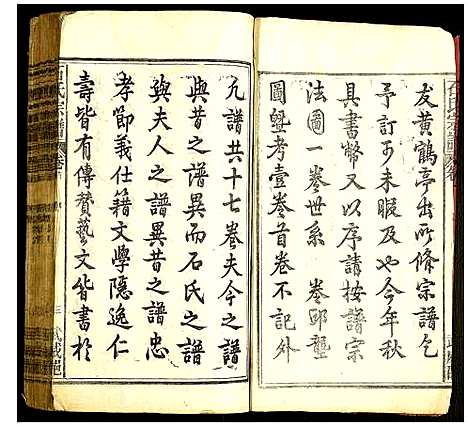 友黃鶴亭出所修宗譜乞
予訂可未暇及也今年秋
具書幣又以序請按譜宗
法圖一卷世系 卷邱壟
圖塋考壹卷首卷不記外
凡譜共十七卷夫今之譜
與昔之譜異而石氏之譜
與夫人之譜異昔之譜忠
孝節義仕籍文學隱逸仁
壽皆有傳贊藝文皆書於
石氏宗譜